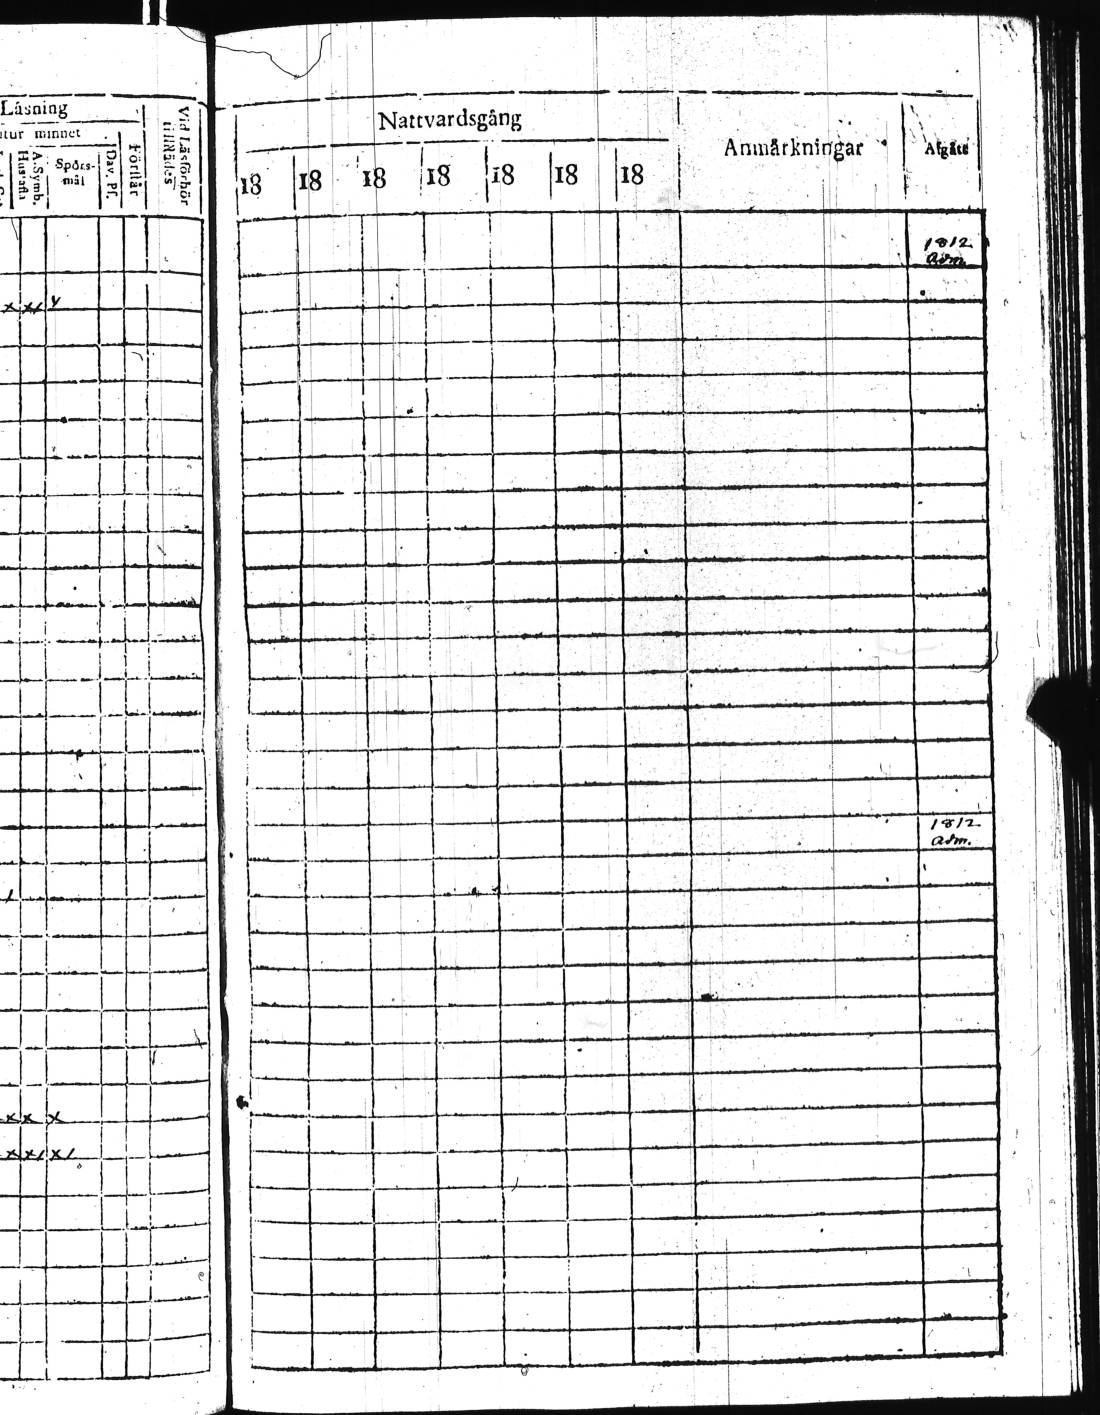 Läsning
utur minnet
A. Symb.
Hustafla
Spörs-
mål
Dav. Ps.
Förstår
Vid Läsförhör
tillstädes
x x/ y
/
x x x
x x/ x/
Nattvardsgång
18 18 18 18 18 18 18
Anmärkningar
Afgått
1812
adm.
1812
adm.